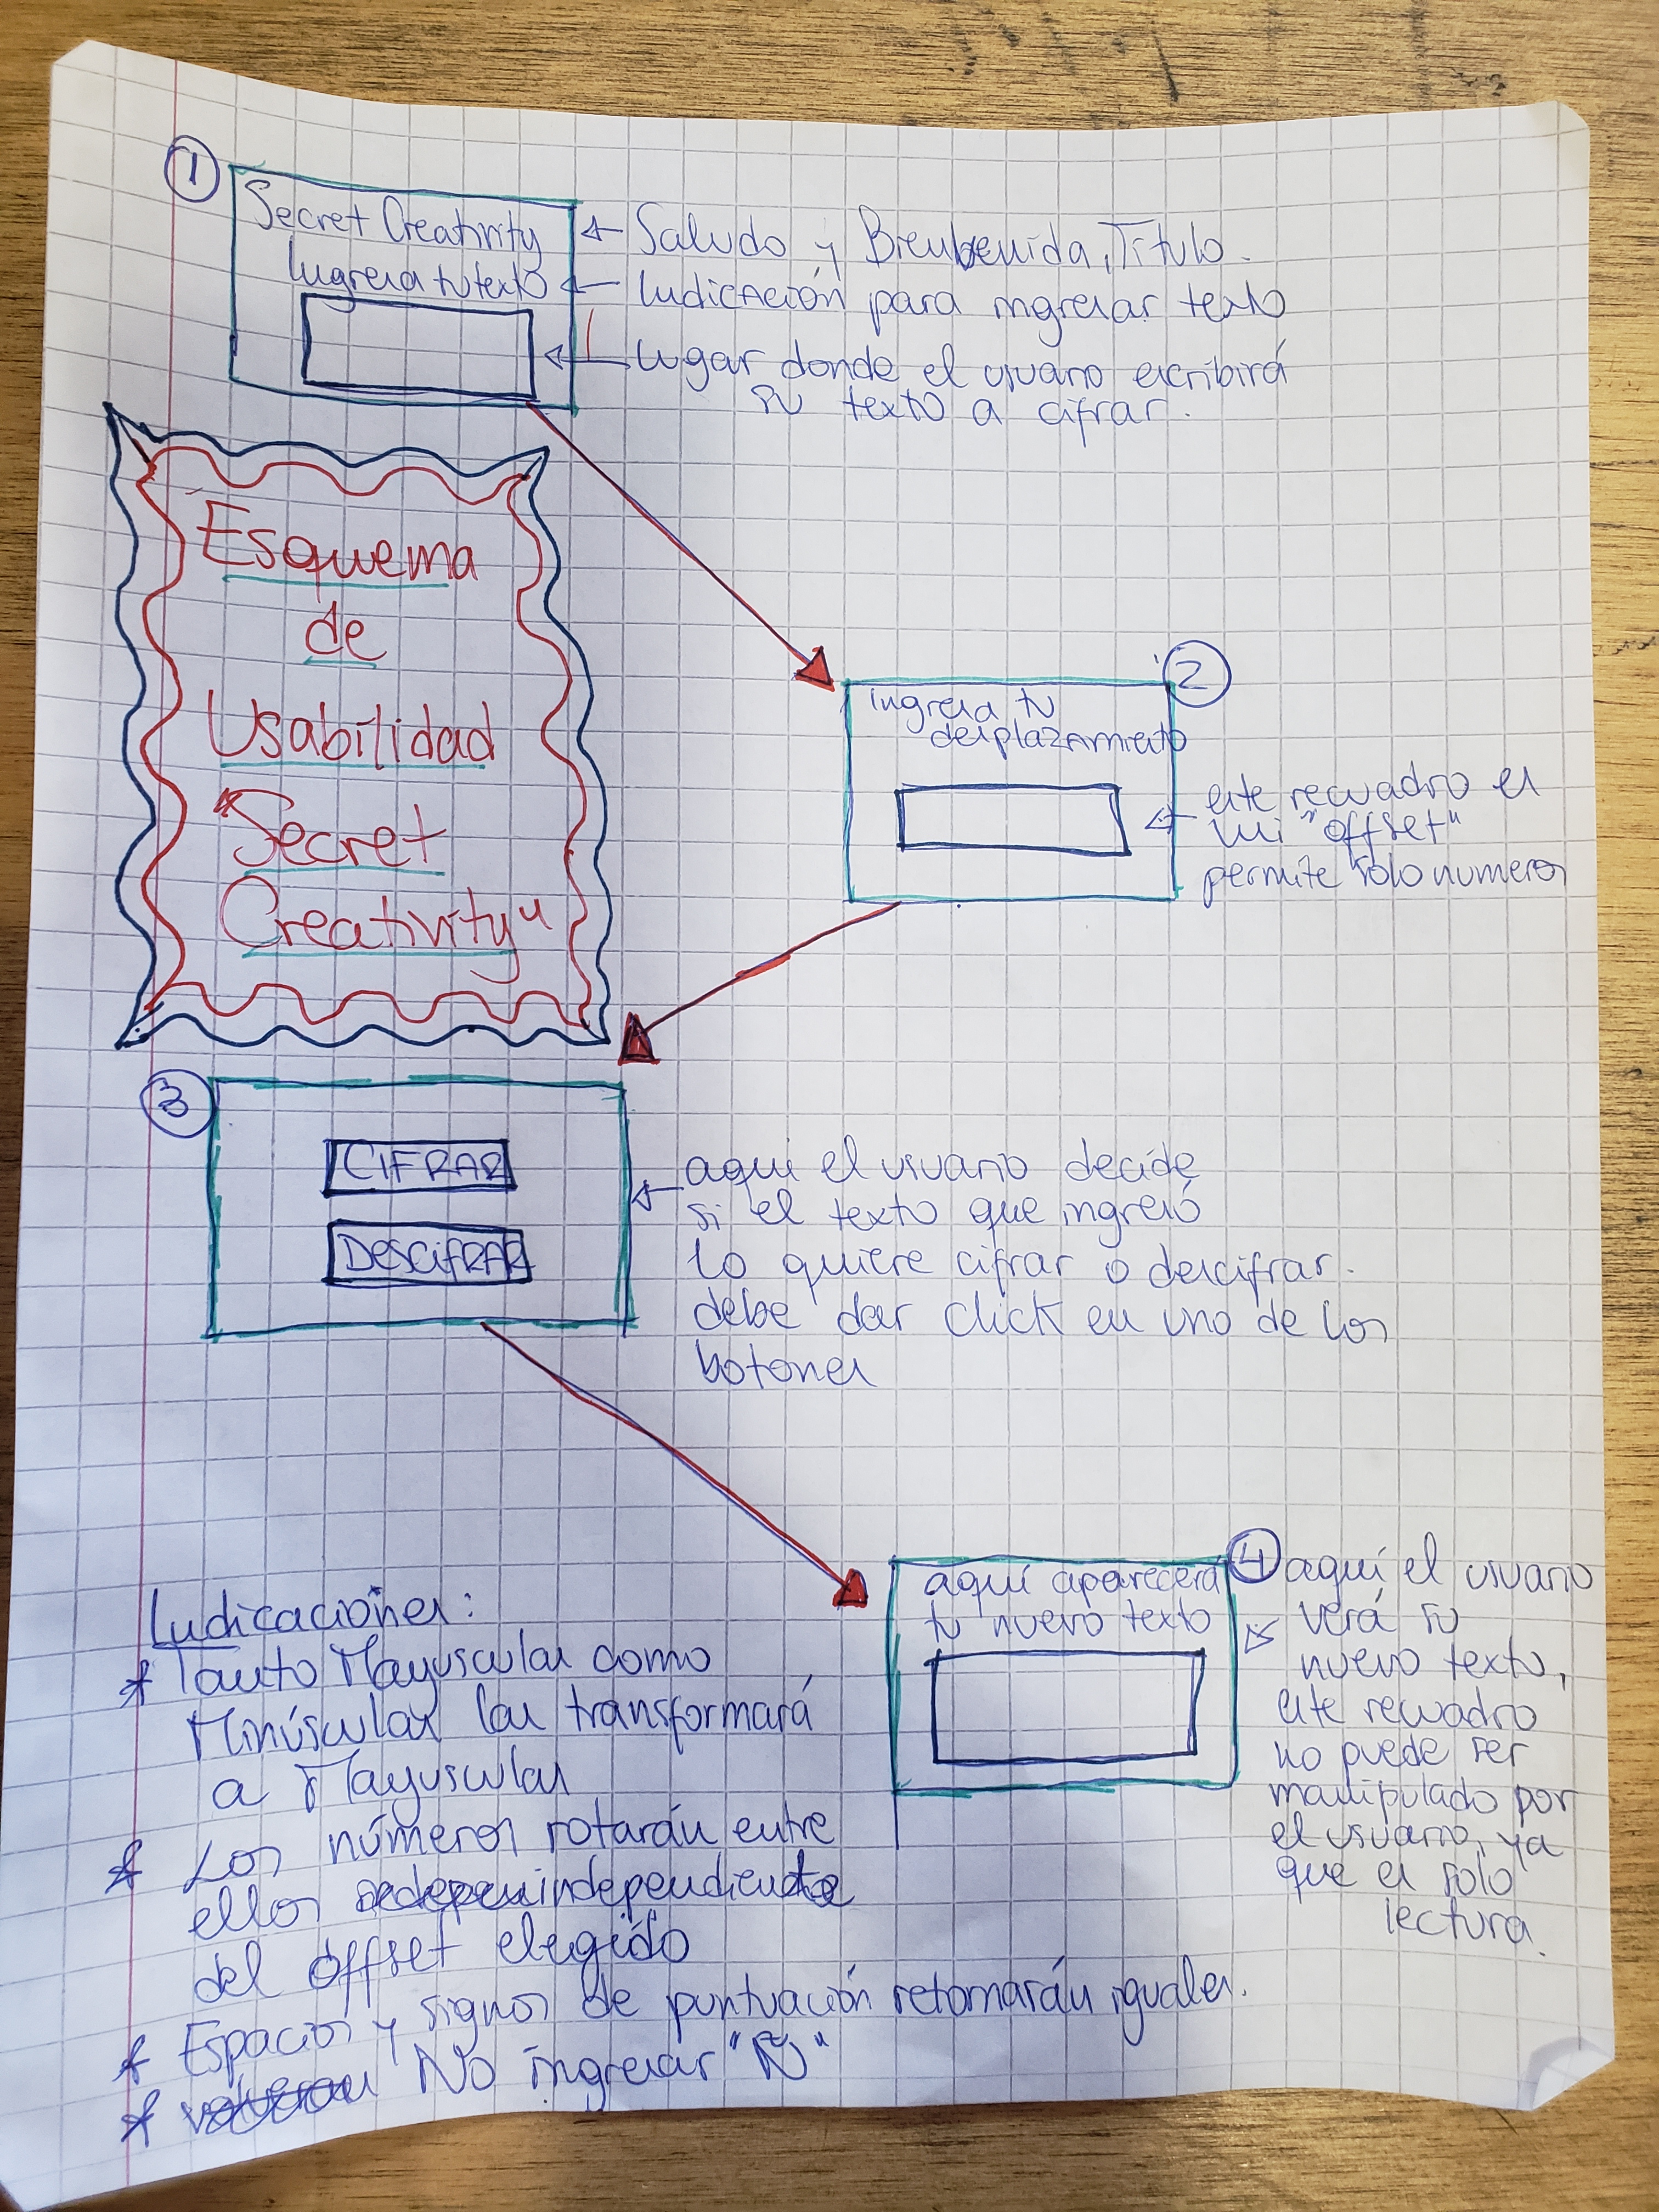 1
Secret Creativity
Ingresa tu texto
Saludo y Bienbenida, Título.
Indicación para ingresar texto
lugar donde el usuario escribirá
su texto a cifrar.
Esquema
de
Usabilidad
"Secret
Creativity"
2
Ingresa tu
desplazamiento
este recuadro es
mi "offset"
permite solo numeros
3
CIFRAR
DESCIFRAR
aqui el usuario decide
si el texto que ingresó
lo quiere cifrar o descifrar.
debe dar click en uno de los
botones
4
aquí aparecerá
tu nuevo texto
aquí el usuario
verá su
nuevo texto,
este recuadro
no puede ser
manipulado por
el usuario, ya
que es solo
lectura.
Indicaciones:
* Tanto Mayusculas como
Minúsculas las transformará
a Mayusculas
* Los números rotarán entre
ellos independiente
del offset elegido
* Espacios y signos de puntuación retornarán iguales.
* No ingresar "Ñ"